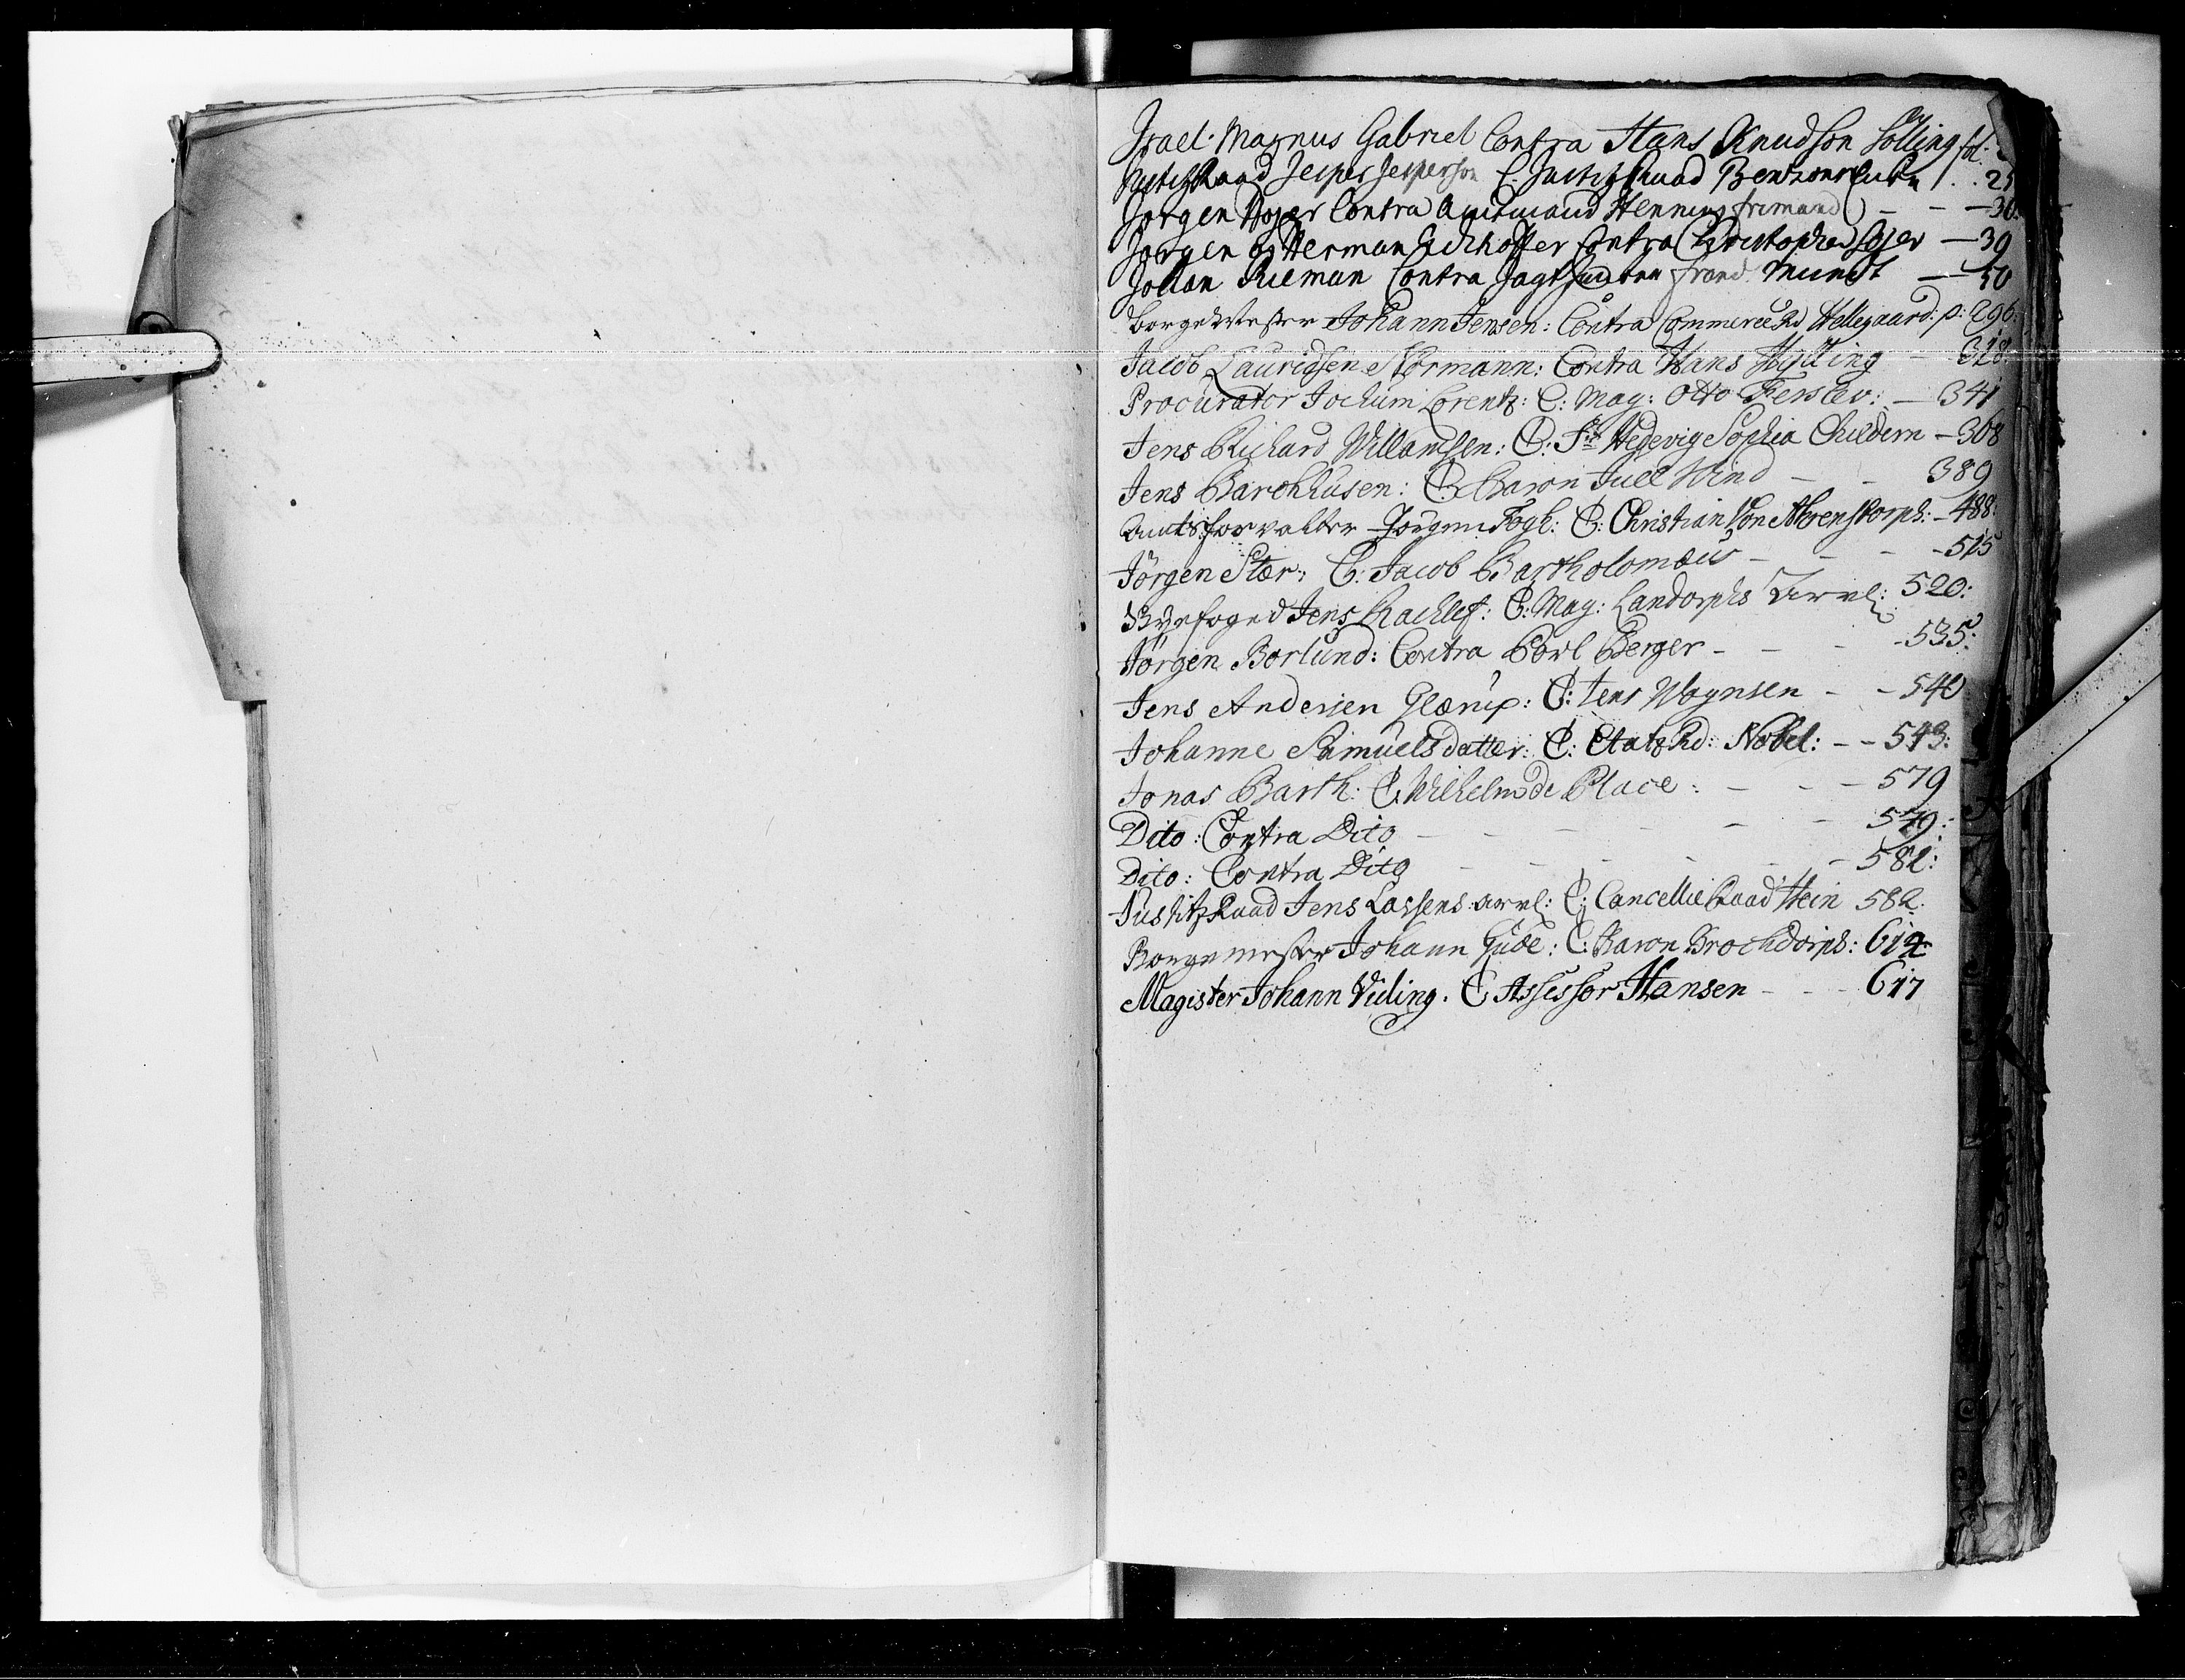 Israel Magnus Gabriel Contra Hans Knudson Sölling fol.
Justitz Raad Jesper Jesperson C. Justitz Raad Bentzons Enke 25
Jörgen Højer Contra Amtmand Henning 36
Jörgen og Herman Eichhoffer Contra Christopher Sojer — 39
Johan Rieman Contra Jagt Mundt — 50
Borgemester Johann Jensen: Contra Commerce Rd Hellegaard: p: 296:
Jacob Lauridsen Normann: Contra Hans Hylling — 318
Procurator Jochum Lorentz: C: Mag: Otto Ferslev: — 341
Jens Richard Willamsen: C: Fr: Hedevig Sophia Childern — 368
Jens Barchhusen: C: Baron Juel Wind — — 389
Amtsforvalter Jörgen Fogh: C: Christian Von Ahrenstorph: — 488:
Jörgen Stær: C: Jacob Bartholomæus — — — 515
Byefoged Jens Rachlef: C: Mag: Landorphs Arvl: 520:
Jörgen Borlund: Contra Povl Berger — — — 535:
Jens Andersen Glærup: C: Jens Mognsen — — 540
Johanne Samuelsdatter: C: Etatz Rd: Nobel: — — 543:
Jonas Barth: C: Wilhelm de Place: — — — 579
Dito: Contra Dito — — — — — — 579:
Dito: Contra Dito — — — — — 581:
Justitz Raad Jens Lassens arvl: C: Cancellie Raad Hein 582:
Borgemester Johann Gude: C: Baron Brochdorph: 614
Magister Johann Viding. C Assessor Hansen — — — 617